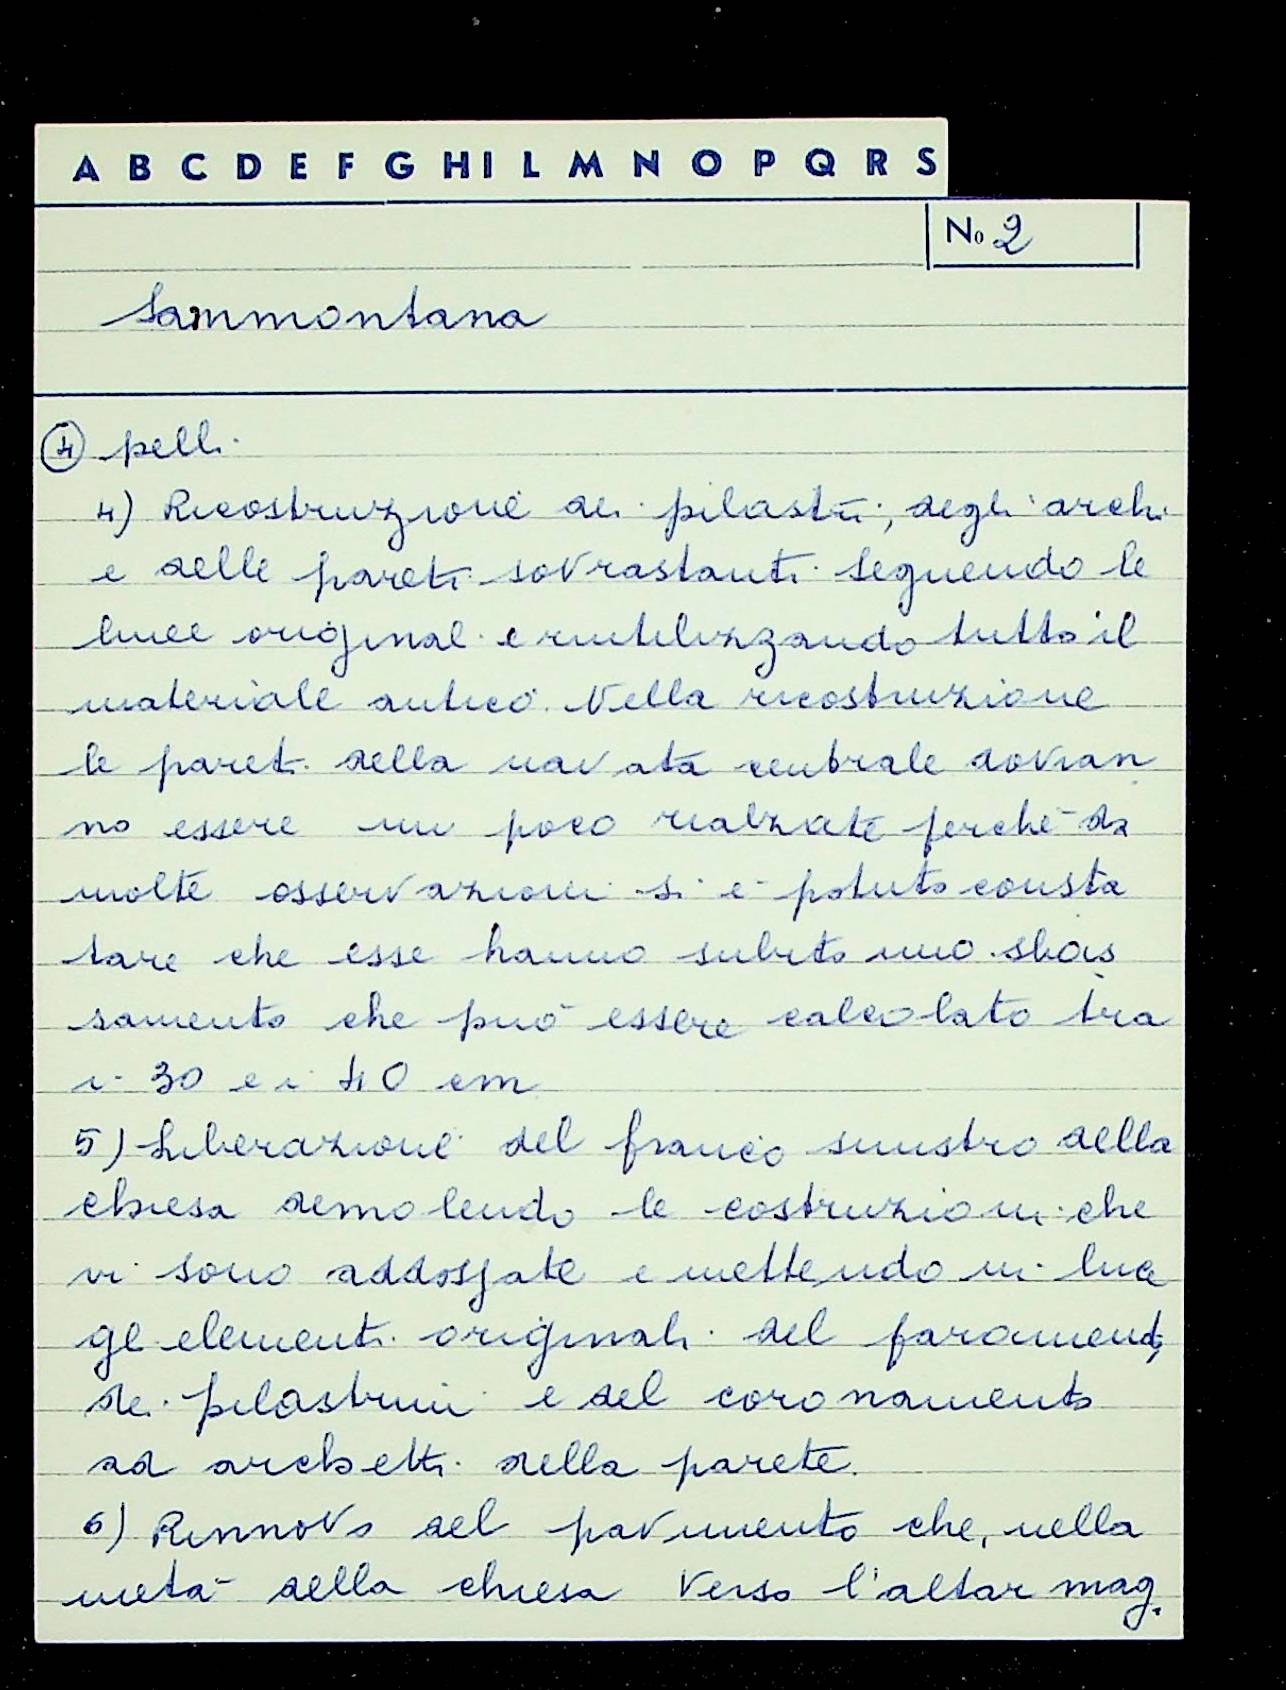 A B C D E F G H I L M N O P Q R S
No 2
Sammontana
4 pelli.
4) Ricostruzione dei pilastri, degli archi
e delle pareti sovrastanti seguendo le
linee originali e riutilizzando tutto il
materiale antico. Nella ricostruzione
le pareti della navata centrale dovran
no essere un poco rialzate perchè da
molte osservazioni si è potuto consta
tare che esse hanno subito uno sbas
samento che può essere calcolato tra
i 30 e i 40 cm
5) Liberazione del fianco sinistro della
chiesa demolendo le costruzioni che
vi sono addossate e mettendo in luce
gli elementi originali del paramento,
dei pilastrini e del coronamento
ad archetti della parete.
6) Rinnovo del pavimento che, nella
metà della chiesa verso l'altar mag.